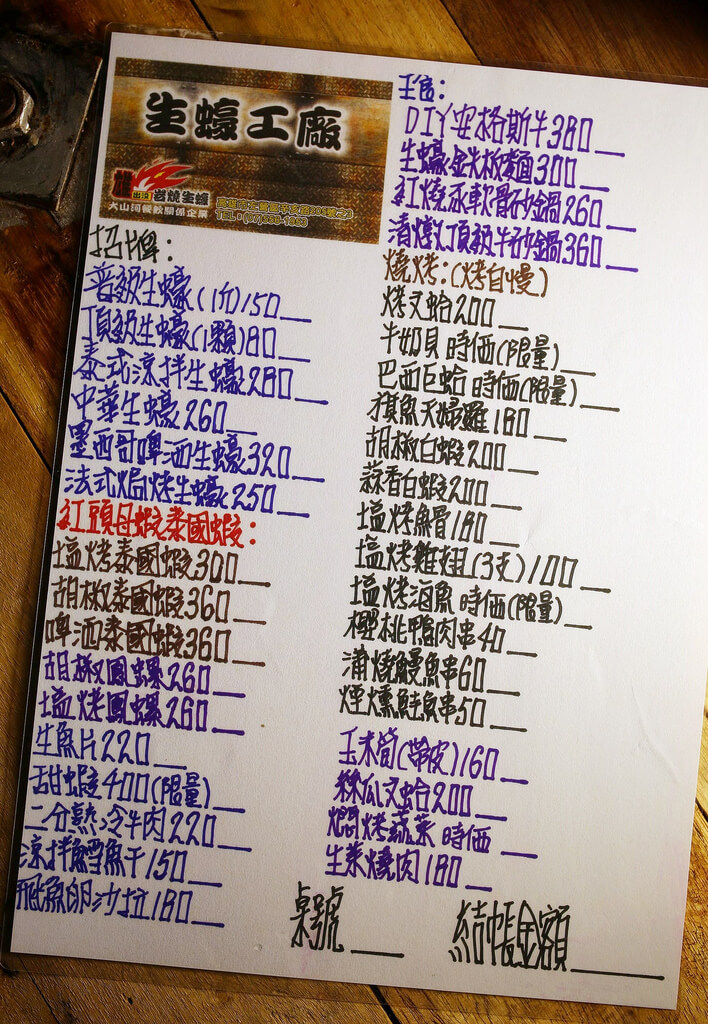 生蠔工廠
龍 出沒 岩燒生蠔
大山河餐飲關係企業
招牌：
普級生蠔(1斤)150__
頂級生蠔(1顆)80__
泰式涼拌生蠔280__
中華生蠔260__
墨西哥啤酒生蠔320__
法式焗烤生蠔250__
紅頭母蝦泰國蝦：
塩烤泰國蝦300__
胡椒泰國蝦360__
啤酒泰國蝦360__
胡椒鳳螺260__
塩烤鳳螺260__
生魚片220__
甜蝦400(限量)__
二分熟冷牛肉220__
涼拌鱈魚干150__
飛魚卵沙拉180__
主食：
DIY安格斯牛380__
生蠔鉄板麵300__
紅燒豕軟骨砂鍋260__
清燉頂級牛砂鍋360__
燒烤：(烤自慢)
烤文蛤200__
牛奶貝 時価(限量)__
巴西巨蛤 時価(限量)__
旗魚天婦羅180__
胡椒白蝦200__
蒜香白蝦200__
塩烤魚骨180__
塩烤雞翅(3支)100__
塩烤海魚 時価(限量)__
櫻桃鴨肉串40__
蒲燒鰻魚串60__
煙燻鮭魚串50__
玉米筍(帶皮)160__
絲瓜文蛤200__
焗烤蔬菜 時価__
生菜燒肉180__
桌號__
結帳金額__